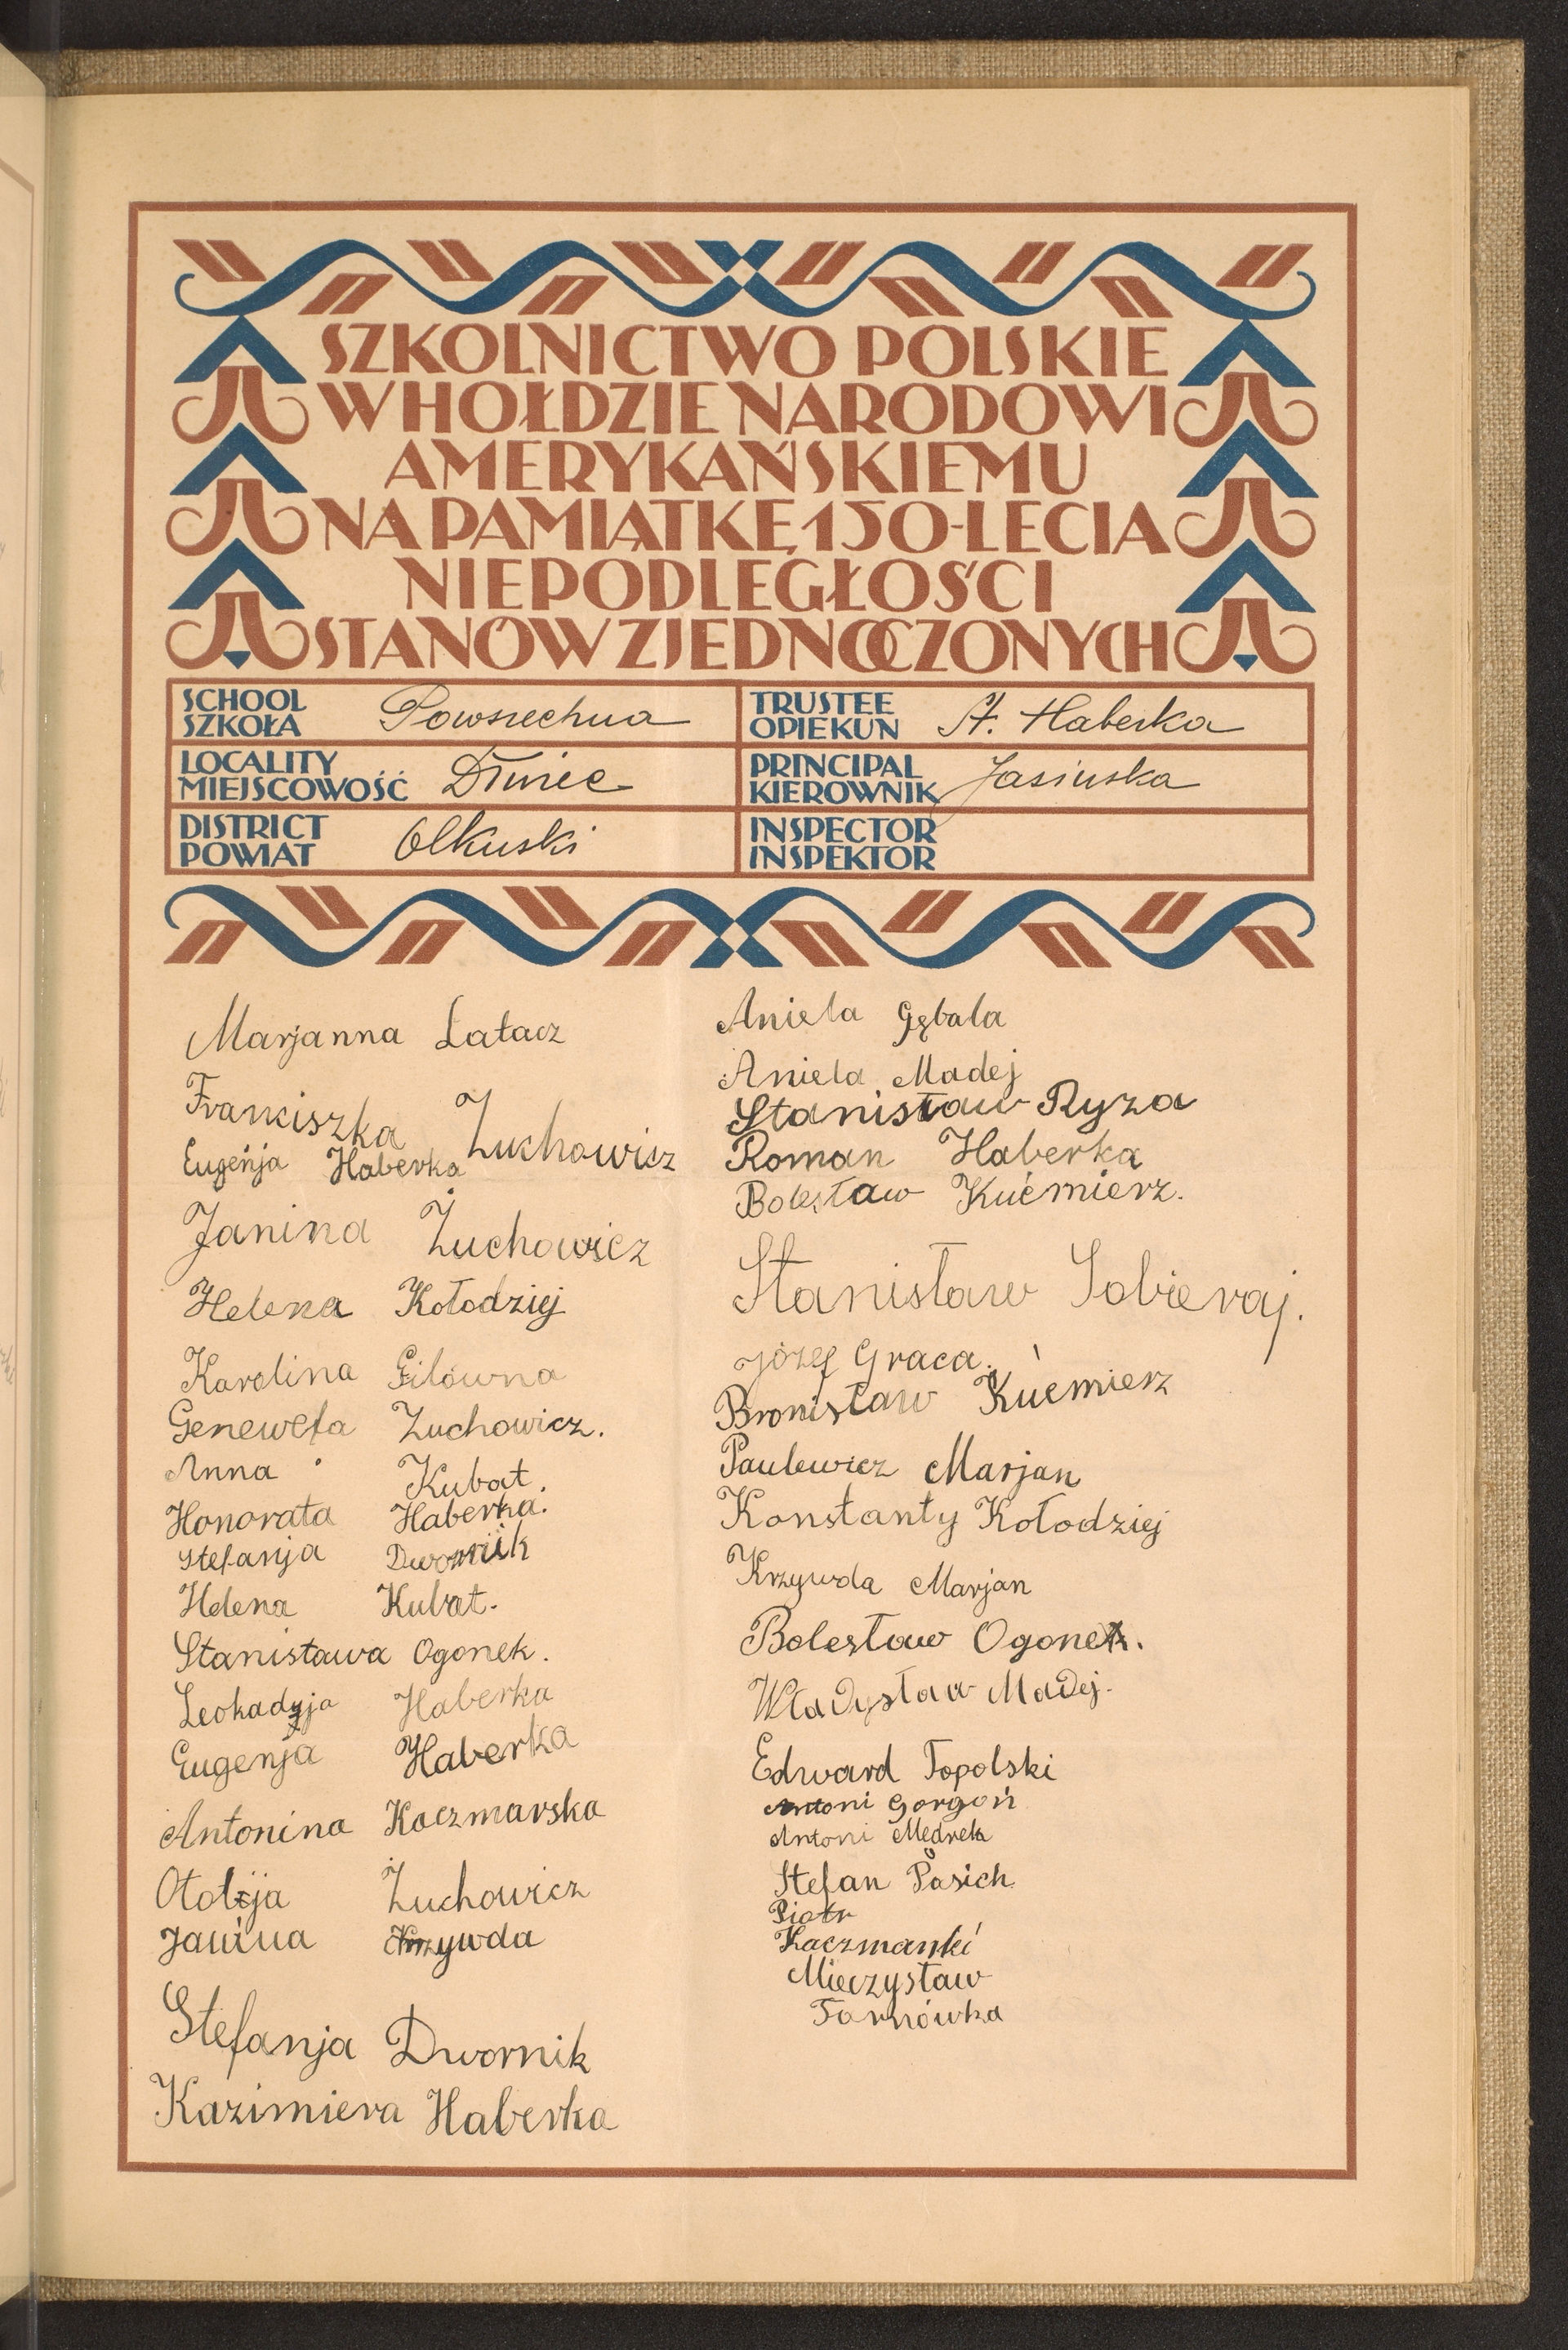 SZKOLNICTWO POLSKIE
W HOŁDZIE NARODOWI
AMERYKAŃSKIEMU
NA PAMIĄTKĘ 150-LECIA
NIEPODLEGŁOŚCI
STANÓW ZJEDNOCZONYCH
SCHOOL
SZKOŁA
Powszechna
TRUSTEE
OPIEKUN
St. Haberka
LOCALITY
MIEJSCOWOŚĆ
Dłużec
PRINCIPAL
KIEROWNIK
Jasińska
DISTRICT
POWIAT
Olkuski
INSPECTOR
INSPEKTOR
Marjanna Łatacz
Franciszka Żuchowicz
Eugenja Haberka
Janina Żuchowicz
Helena Kołodziej
Karolina Gilówna
Genewefa Żuchowicz.
Anna Kubat.
Honorata Haberka.
Stefanja Dwornik
Helena Kubat.
Stanisława Ogonek.
Leokadyja Haberka
Eugenja Haberka
Antonina Kaczmarska
Otolja Żuchowicz
Janina Krzywda
Stefanja Dwornik
Kazimiera Haberka
Aniela Gębala
Aniela Madej
Stanisław Ryza
Roman Haberka
Bolesław Kućmierz.
Stanisław Sobieraj.
Józef Graca.
Bronisław Kućmierz
Paulewicz Marjan
Konstanty Kołodziej
Krzywda Marjan
Bolesław Ogonek.
Władysław Madej.
Edward Topolski
Antoni Gorgoń
Antoni Mędrek
Stefan Pasich
Piotr
Kaczmarski
Mieczysław
Tarnówka